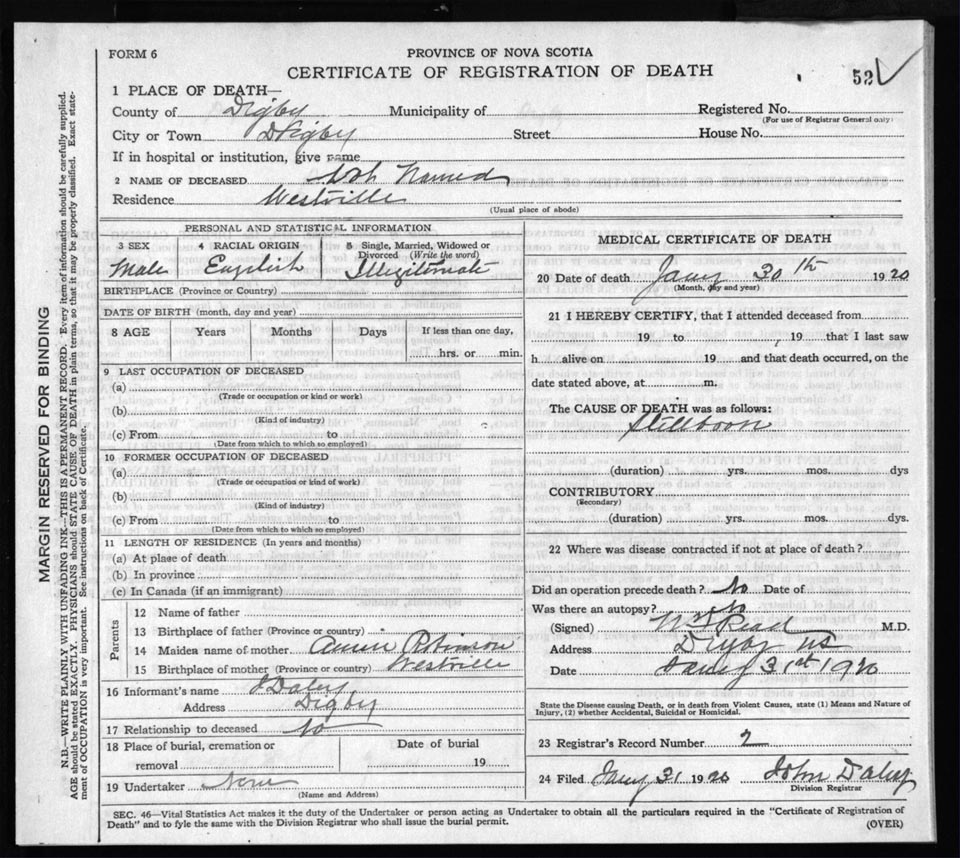 FORM 6
PROVINCE OF NOVA SCOTIA
CERTIFICATE OF REGISTRATION OF DEATH
52
1 PLACE OF DEATH—
County of Digby Municipality of Registered No.
(For use of Registrar General only)
City or Town Digby Street House No.
If in hospital or institution, give name
2 NAME OF DECEASED Not Named
Residence Westville
(Usual place of abode)
PERSONAL AND STATISTICAL INFORMATION
3 SEX 4 RACIAL ORIGIN 5 Single, Married, Widowed or Divorced (Write the word)
Male English Illegitimate
BIRTHPLACE (Province or Country)
DATE OF BIRTH (month, day and year)
8 AGE Years Months Days If less than one day,
hrs. or min.
9 LAST OCCUPATION OF DECEASED
(a)
(Trade or occupation or kind or work)
(b)
(Kind of industry)
(c) From to
(Date from which to which so employed)
10 FORMER OCCUPATION OF DECEASED
(a)
(Trade or occupation or kind of work)
(b)
(Kind of industry)
(c) From to
(Date from which to which so employed)
11 LENGTH OF RESIDENCE (In years and months)
(a) At place of death
(b) In province
(c) In Canada (if an immigrant)
Parents
12 Name of father
13 Birthplace of father (Province or country)
14 Maiden name of mother Robinson
15 Birthplace of mother (Province or country) Westville
16 Informant's name J Daley
Address Digby
17 Relationship to deceased No
18 Place of burial, cremation or Date of burial
removal 19
19 Undertaker None
(Name and Address)
MEDICAL CERTIFICATE OF DEATH
20 Date of death Jany 30th 1920
(Month, day and year)
21 I HEREBY CERTIFY, that I attended deceased from
19 to , 19 that I last saw
h alive on 19 and that death occurred, on the
date stated above, at m.
The CAUSE OF DEATH was as follows:
Stillborn
(duration) yrs. mos. dys
CONTRIBUTORY
(Secondary)
(duration) yrs. mos. dys.
22 Where was disease contracted if not at place of death?
Did an operation precede death? No Date of
Was there an autopsy? No
(Signed) Read M.D.
Address Digby NS
Date Jany 31st 1920
State the Disease causing Death, or in death from Violent Causes, state (1) Means and Nature of
Injury, (2) whether Accidental, Suicidal or Homicidal.
23 Registrar's Record Number 2
24 Filed Jany 31 1920 John Daley
Division Registrar
SEC. 46—Vital Statistics Act makes it the duty of the Undertaker or person acting as Undertaker to obtain all the particulars required in the "Certificate of Registration of
Death" and to fyle the same with the Division Registrar who shall issue the burial permit.
(OVER)
MARGIN RESERVED FOR BINDING
N.B.—WRITE PLAINLY WITH UNFADING INK—THIS IS A PERMANENT RECORD. Every item of information should be carefully supplied.
AGE should be stated EXACTLY. PHYSICIANS should STATE CAUSE OF DEATH in plain terms, so that it may be properly classified. Exact state-
ment of OCCUPATION is very important. See instructions on back of Certificate.